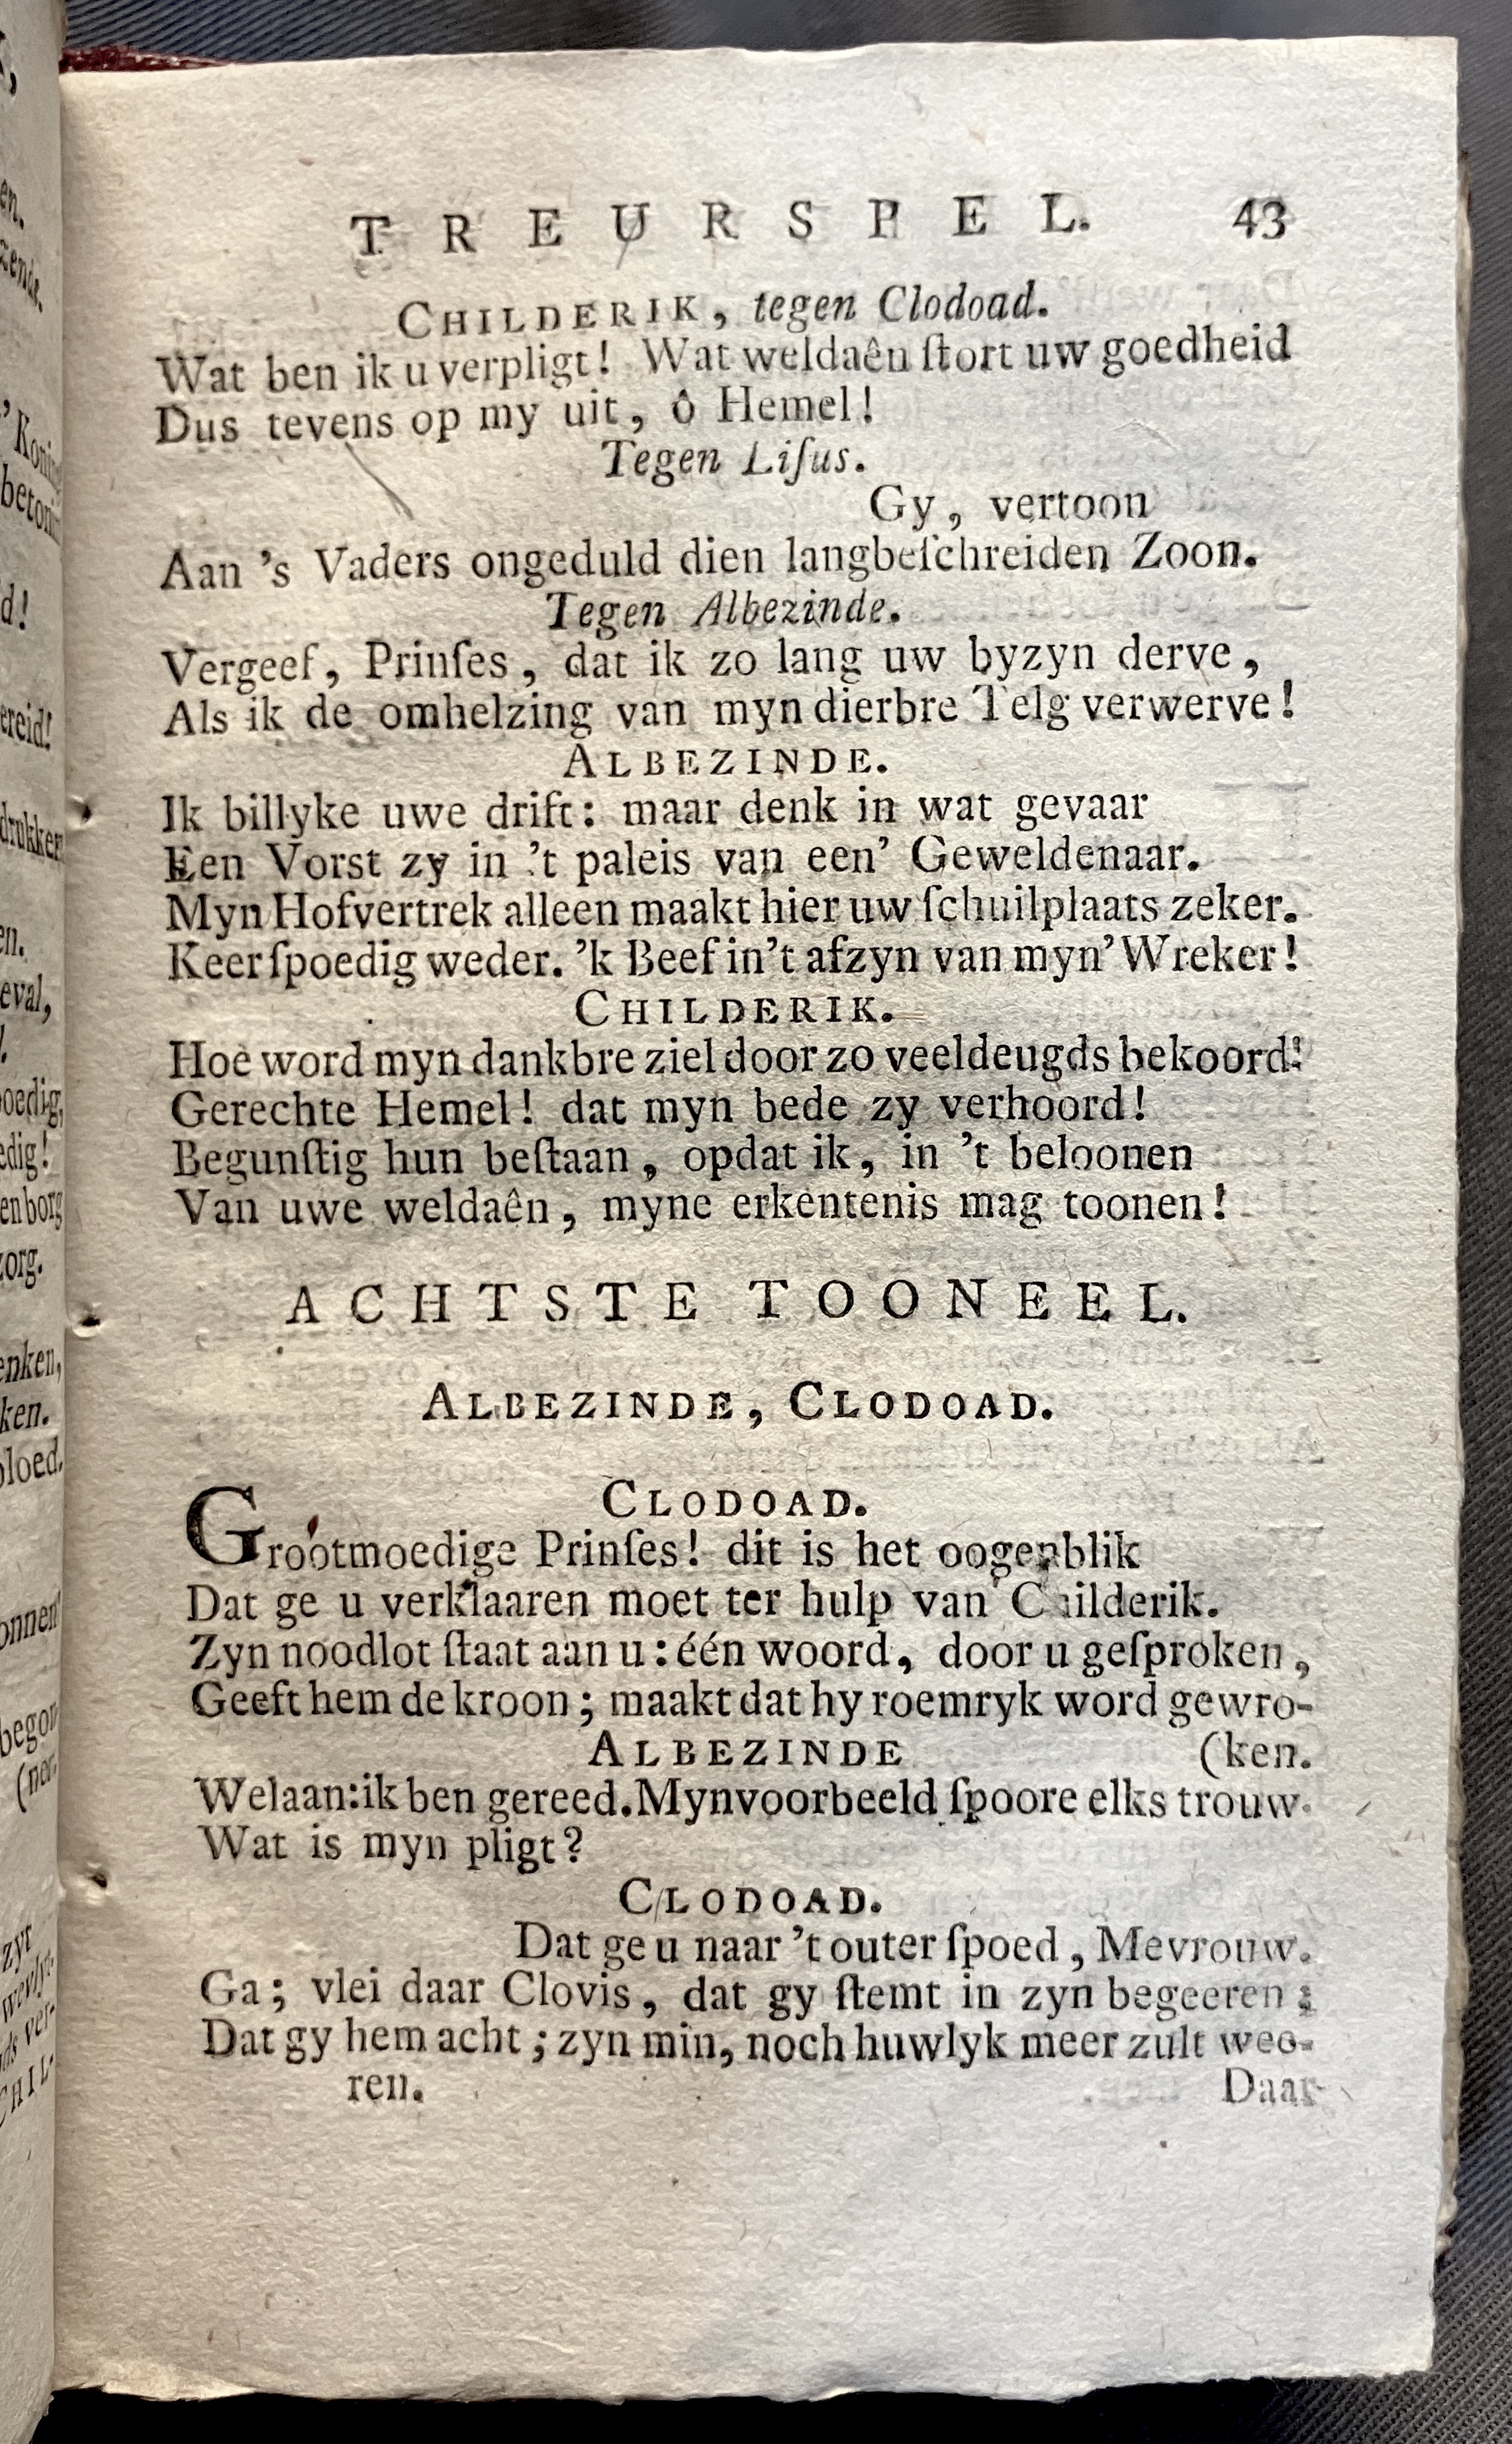 TREURSPEL. 43
CHILDERIK, tegen Clodoad.
Wat ben ik u verpligt! Wat weldaên ſtort uw goedheid
Dus tevens op my uit, ô Hemel!
Tegen Liſus.
Gy, vertoon
Aan 's Vaders ongeduld dien langbeſchreiden Zoon.
Tegen Albezinde.
Vergeef, Prinſes, dat ik zo lang uw byzyn derve,
Als ik de omhelzing van myn dierbre Telg verwerve!
ALBEZINDE.
Ik billyke uwe drift: maar denk in wat gevaar
Een Vorst zy in 't paleis van een' Geweldenaar.
Myn Hofvertrek alleen maakt hier uw ſchuilplaats zeker.
Keer ſpoedig weder. 'k Beef in 't afzyn van myn' Wreker!
CHILDERIK.
Hoe word myn dankbre ziel door zo veel deugds bekoord!
Gerechte Hemel! dat myn bede zy verhoord!
Begunſtig hun beſtaan, opdat ik, in 't beloonen
Van uwe weldaên, myne erkentenis mag toonen!
ACHTSTE TOONEEL.
ALBEZINDE, CLODOAD.
CLODOAD.
Grootmoedige Prinſes! dit is het oogenblik
Dat ge u verklaaren moet ter hulp van Childerik.
Zyn noodlot ſtaat aan u: één woord, door u geſproken,
Geeft hem de kroon; maakt dat hy roemryk word gewro-
ALBEZINDE (ken.
Welaan: ik ben gereed. Myn voorbeeld ſpoore elks trouw.
Wat is myn pligt?
CLODOAD.
Dat ge u naar 't outer ſpoed, Mevrouw.
Ga; vlei daar Clovis, dat gy ſtemt in zyn begeeren;
Dat gy hem acht; zyn min, noch huwlyk meer zult wee-
ren. Daar